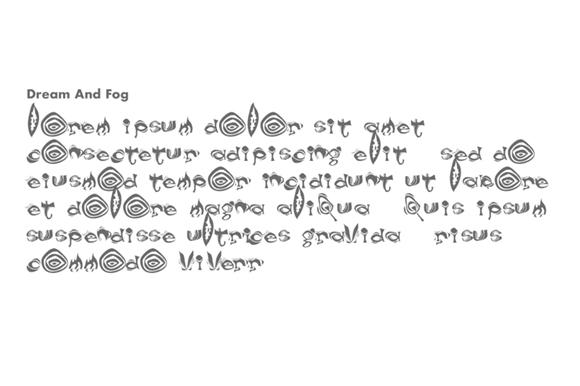 Dream And Fog
Lorem ipsum dolor sit amet
consectetur adipiscing elit sed do
eiusmod tempor incididunt ut labore
et dolore magna aliqua Quis ipsum
suspendisse ultrices gravida risus
commodo viverr